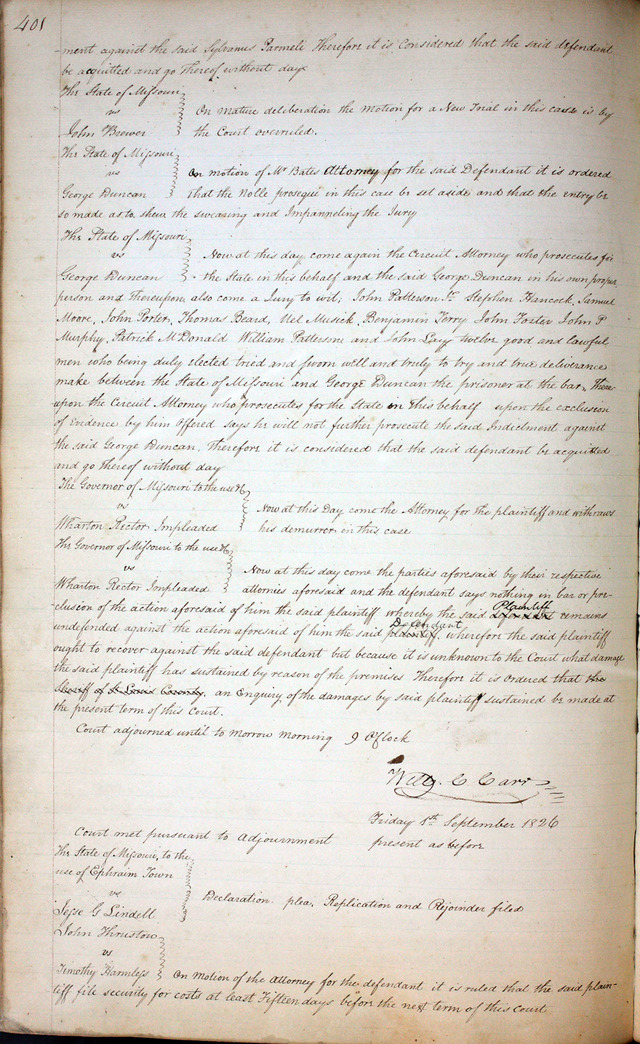 401
ment against the said Sylvanus Parmeli Therefore it is Considered that the said defendant
be acquitted and go thereof without day
The State of Missouri
vs
John Brewer
On mature deliberation the motion for a New Trial in this case is by
the Court overruled.
The State of Missouri
vs
George Duncan
On motion of Mr Bates Attorney for the said Defendant it is ordered
that the Nolle prosequi in this case be set aside and that the entry be
so made as to shew the swearing and Impannelling the Jury
The State of Missouri
vs
George Duncan
Now at this day come again the Circuit Attorney who prosecutes for
the State in this behalf and the said George Duncan in his own proper
person and thereupon also come a Jury to wit, John Patterson Sr Stephen Hancock, Samuel
Moore, John Porter, Thomas Beard, Uel Musick, Benjamin Terry John Foster John P
Murphy, Patrick McDonald William Patterson and John Lay twelve good and lawful
men who being duly elected tried and sworn well and truly to try and true deliverance
make between the State of Missouri and George Duncan the prisoner at the bar, There
upon the Circuit Attorney who prosecutes for the State in this behalf upon the exclusion
of evidence by him offered says he will not further prosecute the said Indictment against
the said George Duncan, therefore it is considered that the said defendant be acquitted
and go thereof without day
The Governor of Missouri to the use &c
vs
Wharton Rector Impleaded
Now at this Day come the Attorney for the plaintiff and withraws
his demurrer in this case
The Governor of Missouri to the use &c
vs
Wharton Rector Impleaded
Now at this day come the parties aforesaid by their respective
attornies aforesaid and the defendant says nothing in bar or pre-
clusion of the action aforesaid of him the said plaintiff whereby the said defendant Plaintiff remains
undefended against the action aforesaid of him the said plaintiff Defendant, wherefore the said plaintiff
ought to recover against the said defendant but because it is unknown to the Court what damage
the said plaintiff has sustained by reason of the premises Therefore it is ordered that the
Sheriff of St Louis County, an Enquiry of the damages by said plaintiff sustained be made at
the present term of this Court.
Court adjourned until to morrow morning 9 OClock
Will C Carr
Friday 1st September 1826
Court met pursuant to adjournment present as before
The State of Missouri, to the
use of Ephraim Town
vs
Jesse G Lindell
Declaration plea, Replication and Rejoinder filed
John Thruston
vs
Timothy Harmless
On Motion of the Attorney for the defendant it is ruled that the said plain-
tiff file security for costs at least Fifteen days before the next term of this Court